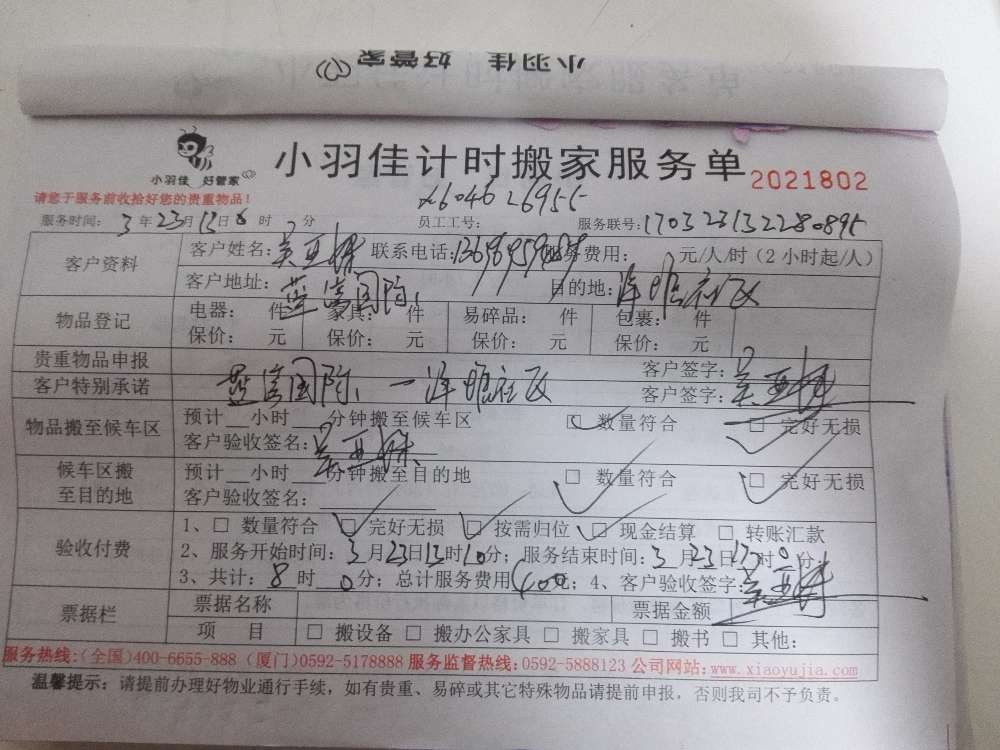 小羽佳 好管家
小羽佳 好管家
小羽佳计时搬家服务单 2021802
请您于服务前收拾好您的贵重物品！
服务时间： 3 年 23 月 13 日 时 分 员工工号： 服务联号：
客户资料 客户姓名： 联系电话： 服务费用： 元/人/时（2小时起/人）
客户地址： 目的地：
物品登记 电器： 件 家具： 件 易碎品： 件 包裹： 件
保价： 元 保价： 元 保价： 元 保价： 元
贵重物品申报 客户签字：
客户特别承诺 客户签字：
物品搬至候车区 预计__小时__分钟搬至候车区 □ 数量符合 □ 完好无损
客户验收签名：
候车区搬至目的地 预计__小时__分钟搬至目的地 □ 数量符合 □ 完好无损
客户验收签名：
验收付费 1、□ 数量符合 □ 完好无损 □ 按需归位 □ 现金结算 □ 转账汇款
2、服务开始时间：3月23日13时10分；服务结束时间：3月23日17时0分；
3、共计：8时0分；总计服务费用 元；4、客户验收签字：
票据栏 票据名称 票据金额
项 目 □ 搬设备 □ 搬办公家具 □ 搬家具 □ 搬书 □ 其他：
服务热线：（全国）400-6655-888（厦门）0592-5178888 服务监督热线：0592-5888123 公司网站：www.xiaoyujia.com
温馨提示：请提前办理好物业通行手续，如有贵重、易碎或其它特殊物品请提前申报，否则我司不予负责。